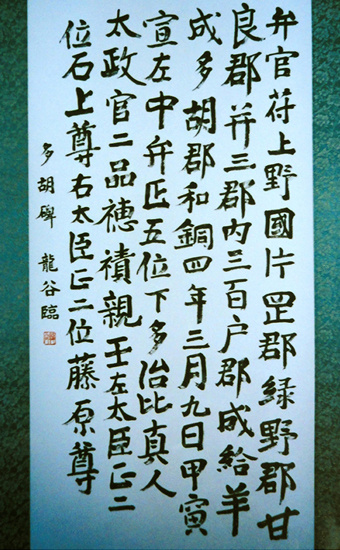 弁官苻上野國片罡郡緑野郡甘
良郡并三郡内三百户郡成給羊
成多胡郡和銅四年三月九日甲寅
宣左中弁正五位下多治比真人
太政官二品穂積親王左太臣正二
位石上尊右太臣正二位藤原尊
多胡碑 龍谷臨